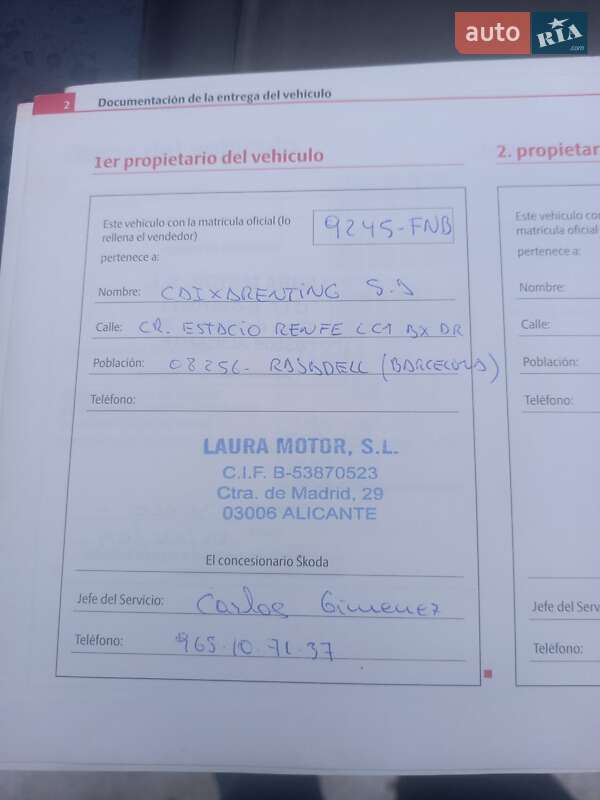 auto RIA.com
2 Documentación de la entrega del vehiculo
1er propietario del vehiculo
Este vehiculo con la matricula oficial (lo
rellena el vendedor)
9245-FNB
pertenece a:
Nombre: CAIXARENTING S.A
Calle: CR. ESTACIO RENFE LC1 BX DR
Población: 08256- RAJADELL (BARCELONA)
Teléfono:
LAURA MOTOR, S.L.
C.I.F. B-53870523
Ctra. de Madrid, 29
03006 ALICANTE
El concesionario Škoda
Jefe del Servicio: Carlos Gimenez
Teléfono: 965.10.71.37
2. propietar
Este vehículo co
matricula oficial
pertenece a:
Nombre:
Calle:
Población:
Teléfono:
Jefe del Serv
Teléfono: